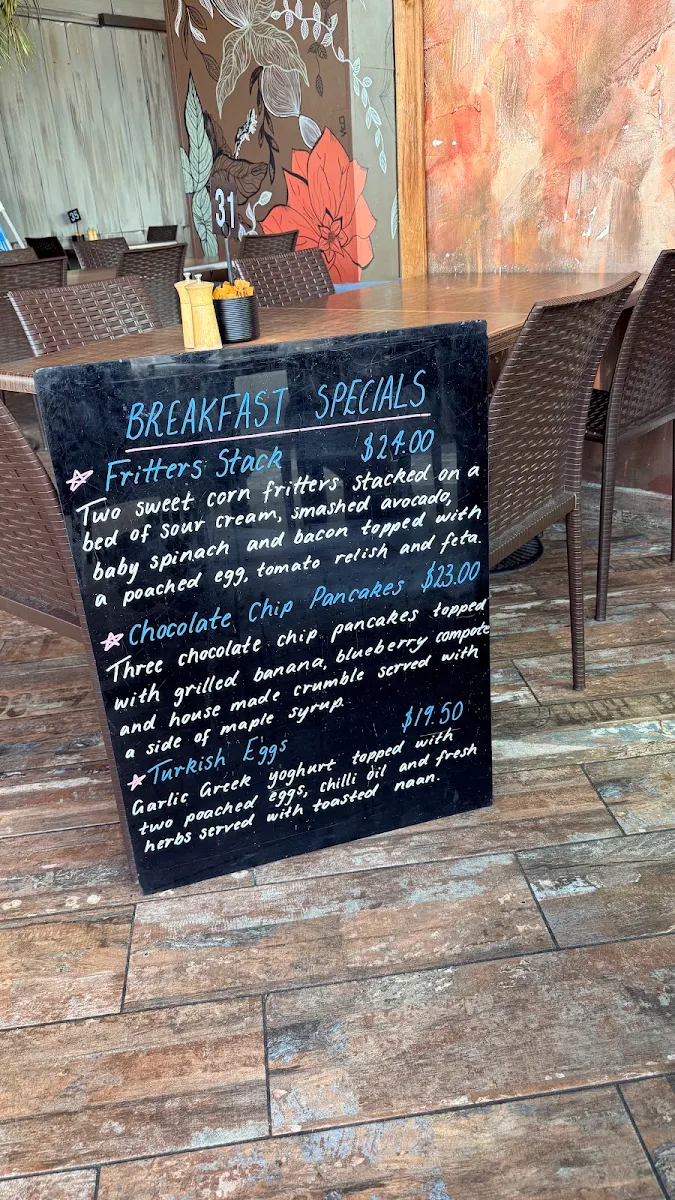 35
31
BREAKFAST SPECIALS
Fritters Stack $24.00
Two sweet corn fritters stacked on a
bed of sour cream, smashed avocado,
baby spinach and bacon topped with
a poached egg, tomato relish and feta.
Chocolate Chip Pancakes $23.00
Three chocolate chip pancakes topped
with grilled banana, blueberry compote
and house made crumble served with
a side of maple syrup.
Turkish Eggs $19.50
Garlic Greek yoghurt topped with
two poached eggs, chilli oil and fresh
herbs served with toasted naan.